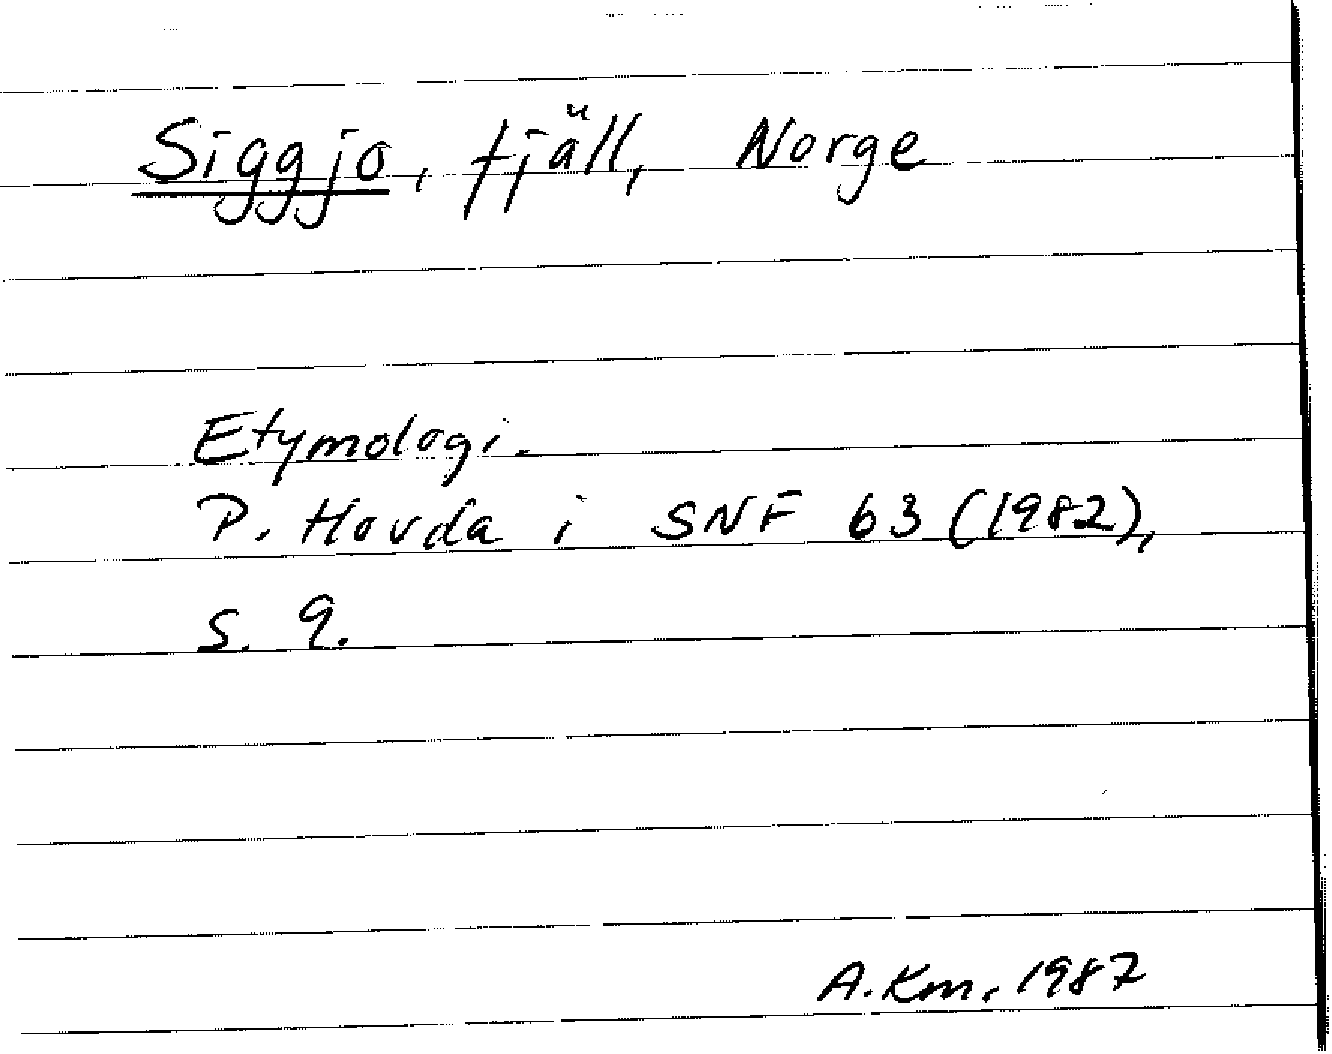 Siggjo, fjäll, Norge
Etymologi.
P. Hovda i SNF 63 (1982),
s. 9.
A. Km. 1987